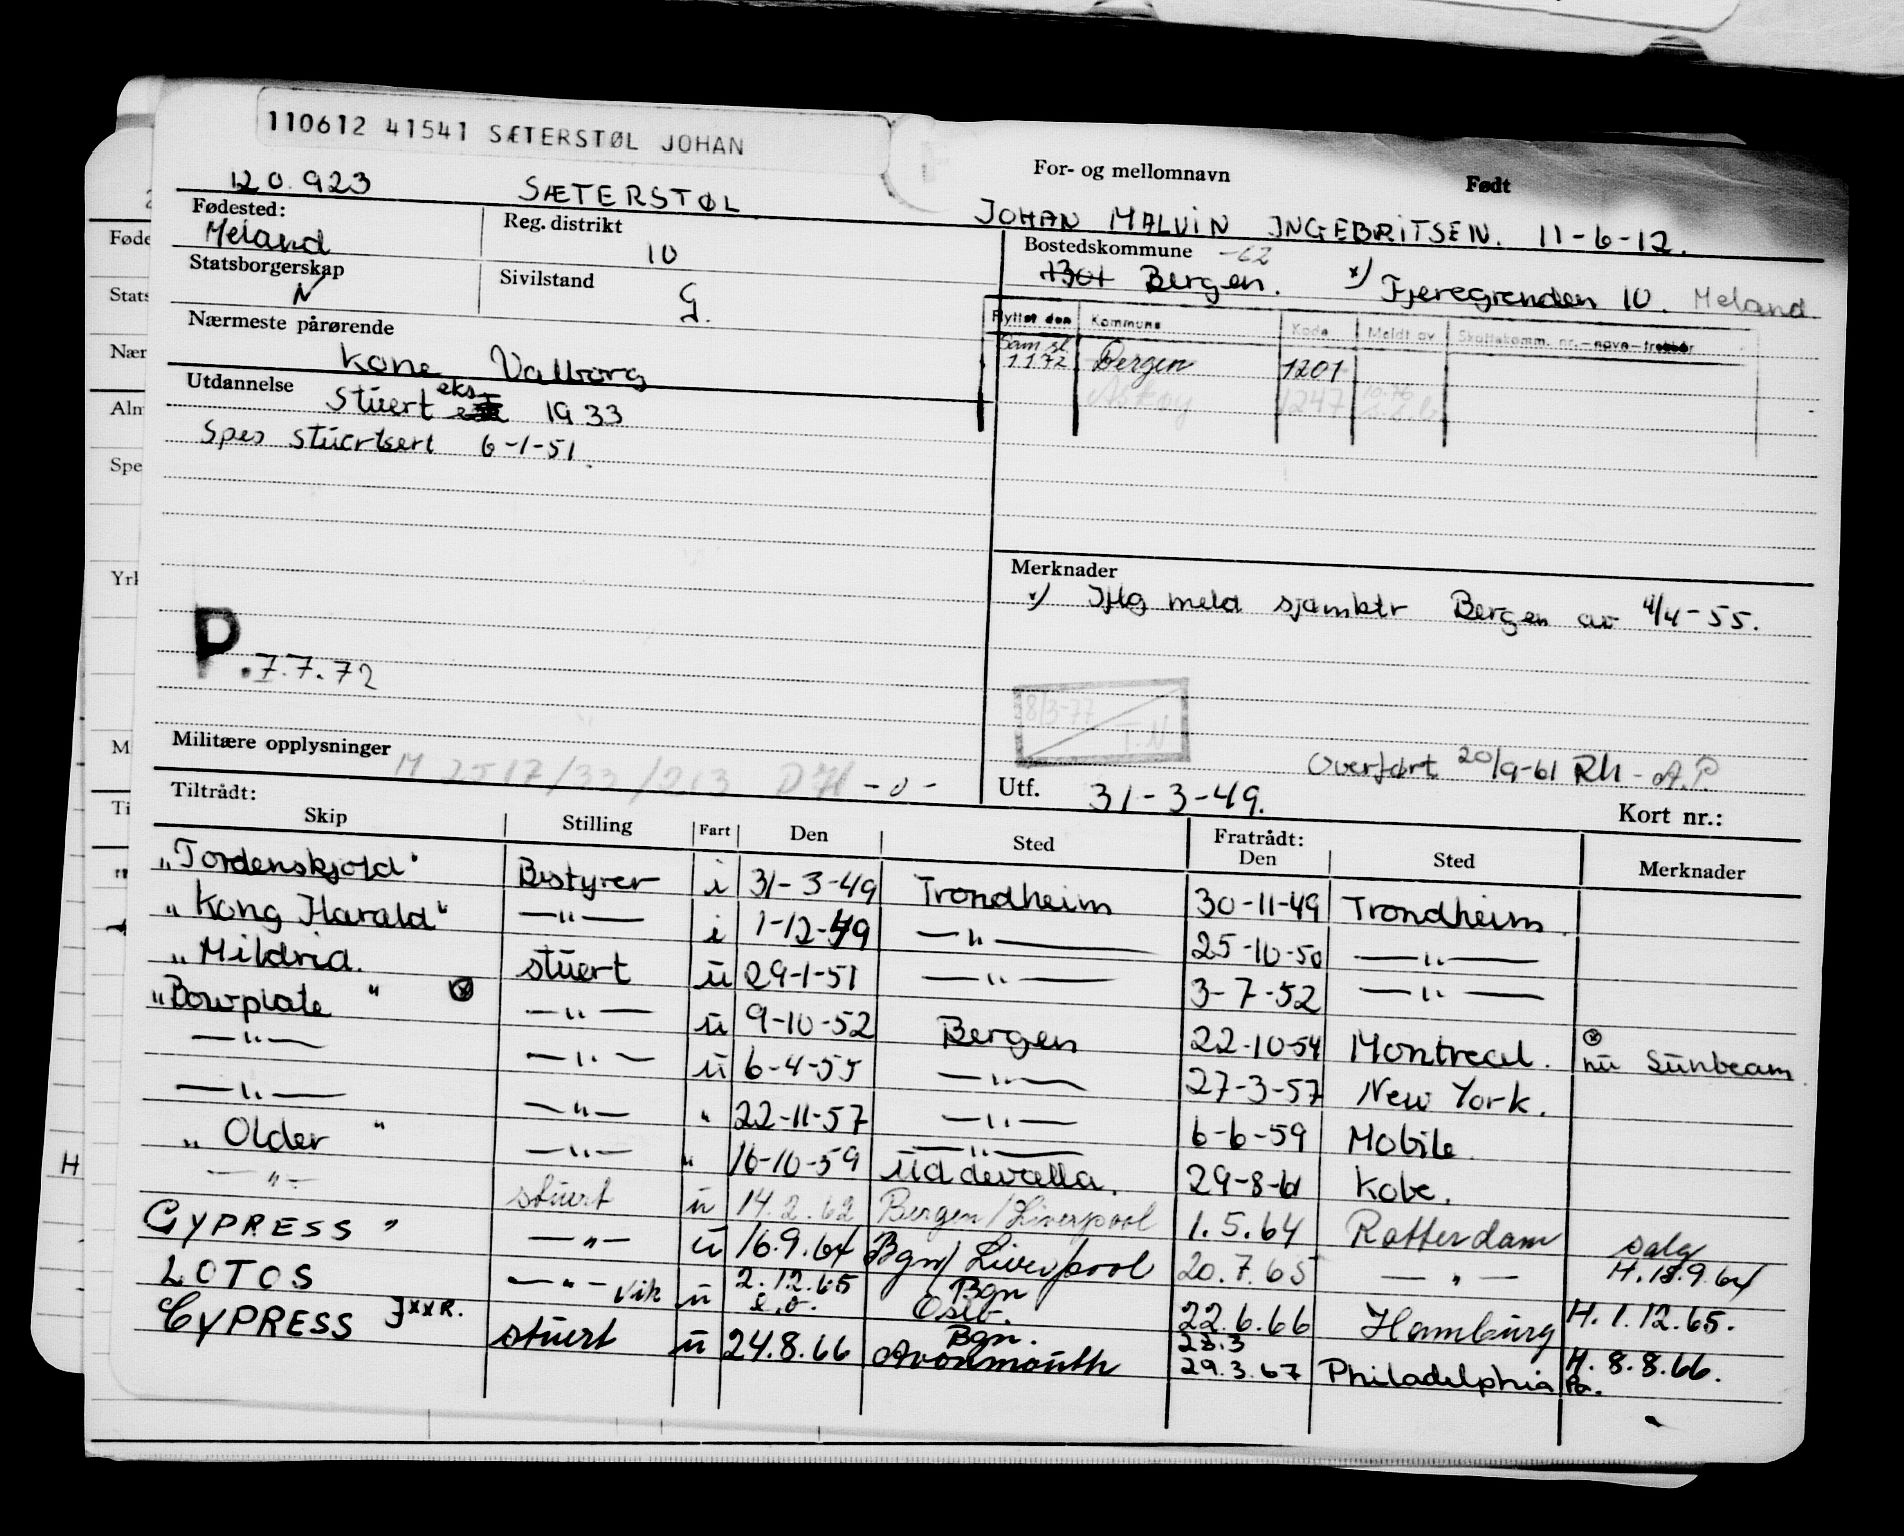 110612 41541 SÆTERSTØL JOHAN
120.923 SÆTERSTØL
For- og mellomnavn Født
JOHAN MALVIN INGEBRITSEN. 11-6-12.
Fødested: Meland
Reg. distrikt 10
Bostedskommune -62
1301 Bergen. x) Fjeregrenden 10. Meland
Statsborgerskap N
Sivilstand G.
Flyttet den Kommune Kode Meldt av Skattekomm. nr.-navn-trekkør
Sam.sl. 1.1.72 Bergen 1201
Askøy 1247
Nærmeste pårørende
Kone Valborg
Utdannelse
Stuert eks 1933
Spes stuertsert 6-1-51.
Merknader
x) Iflg meld sjømktr Bergen av 4/4-55.
P. 7.7.72
8/3-77
T.N
Overført 20/9-61 Rh - A.P
Militære opplysninger
M 2517/33/213 DH -o-
Utf. 31-3-49.
Kort nr.:
Tiltrådt: Fratrådt:
Skip Stilling Fart Den Sted Den Sted Merknader
"Tordenskjold" Bestyrer i 31-3-49 Trondheim 30-11-49 Trondheim
"Kong Harald" —"— i 1-12-49 —"— 25-10-50 —"—
"Mildrid. stuert u 29-1-51 —"— 3-7-52 —"—
"Bowplate " ⊗ —"— u 9-10-52 Bergen 22-10-54 Montreal. ⊗ nu Sunbeam
—"— —"— u 6-4-55 —"— 27-3-57 New York.
—"— —"— " 22-11-57 —"— 6-6-59 Mobile
" Older " —"— " 16-10-59 —"— Uddevalla. 29-8-61 Kobe.
—"— stuert u 14.2.62 Bergen/Liverpool 1.5.64 Rotterdam salg
CYPRESS " —"— u 16.9.64 Bgn/Liverpool 20.7.65 —"— H. 18.9.64
LOTOS —"— vik u 2.12.65 Bgn Oslo. 22.6.66 Hamburg H. 1.12.65.
CYPRESS JxxR. stuert u 24.8.66 Bgn. Avonmouth 23.3 29.3.67 Philadelphia H. 8.8.66. Pa.